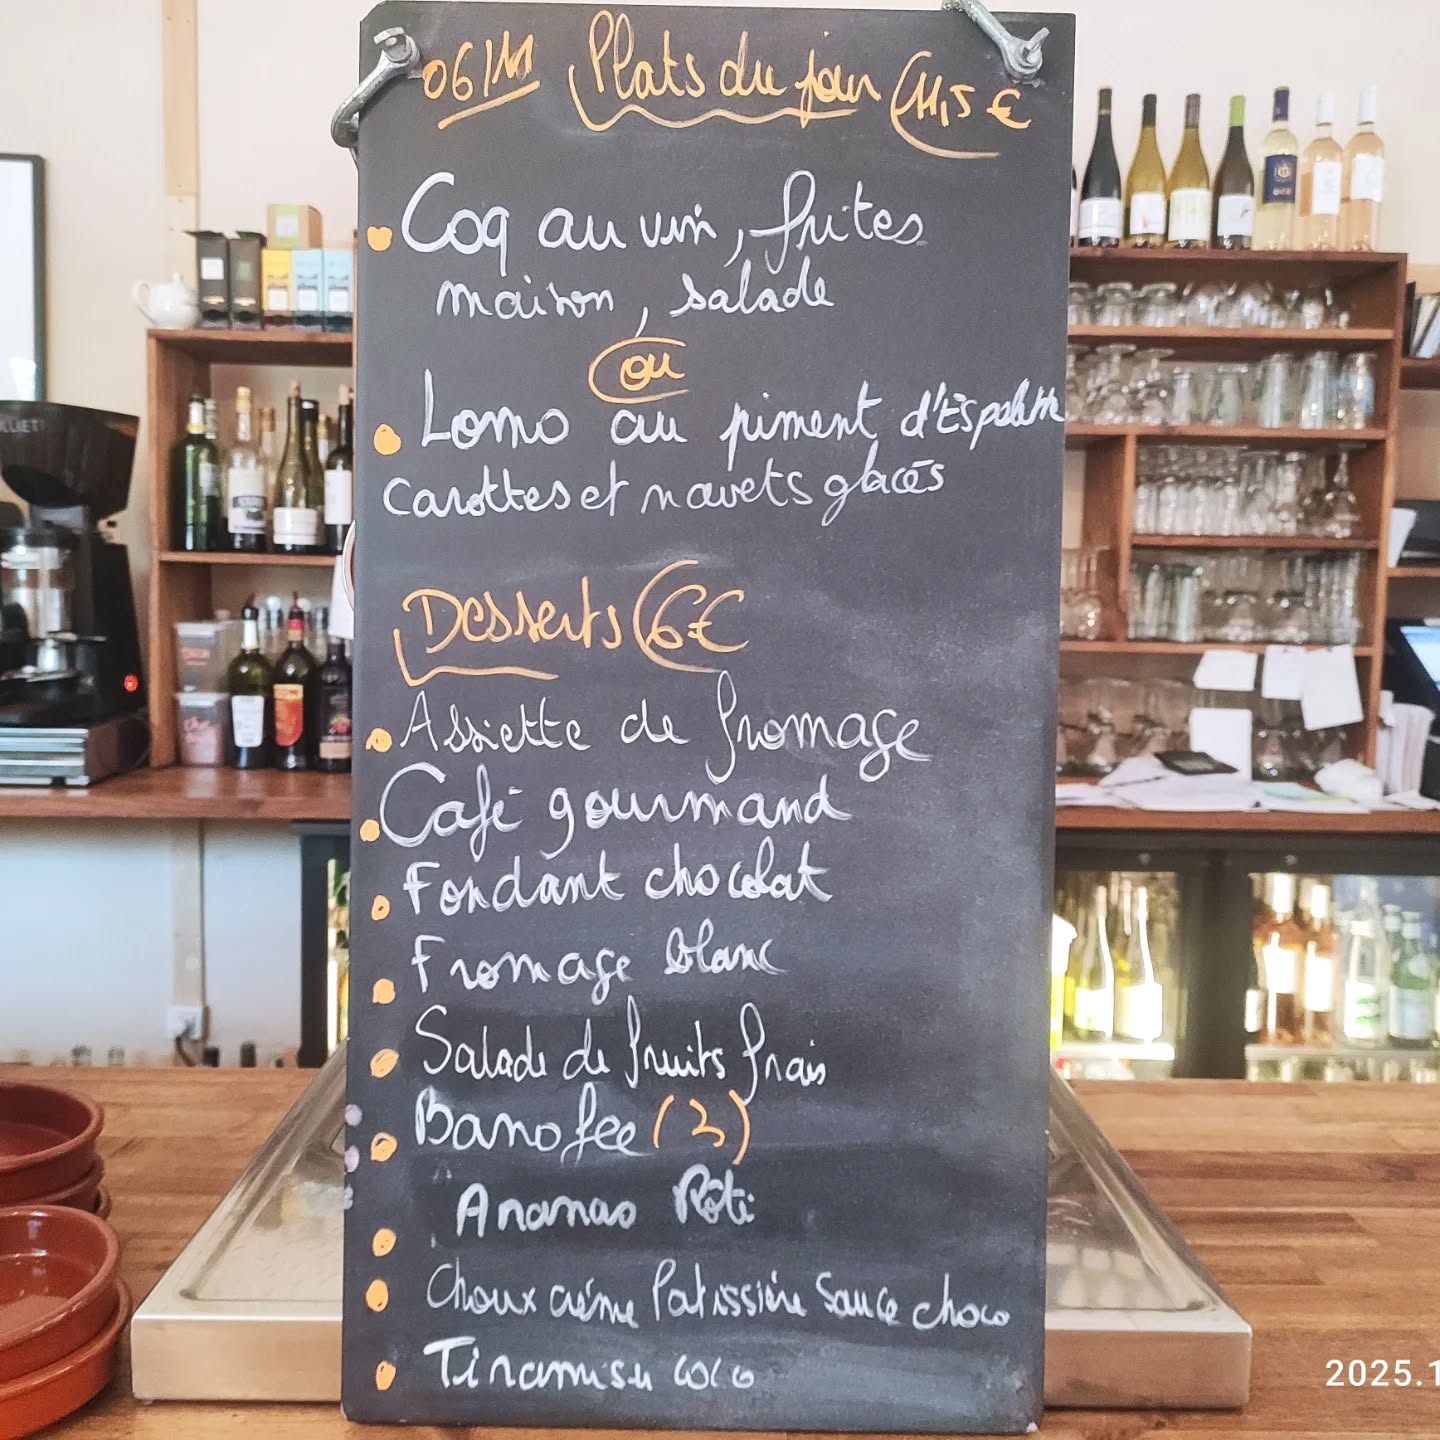 06/11 Plats du jour (11,5 €
Coq au vin, frites
maison, salade
ou
Lomo au piment d'Espelette
carottes et navets glacés
Desserts (6€
Assiette de fromage
Café gourmand
Fondant chocolat
Fromage blanc
Salade de fruits frais
Banofee (2)
Ananas Rôti
Choux crème Patissière Sauce choco
Tiramisu coco
2025.1